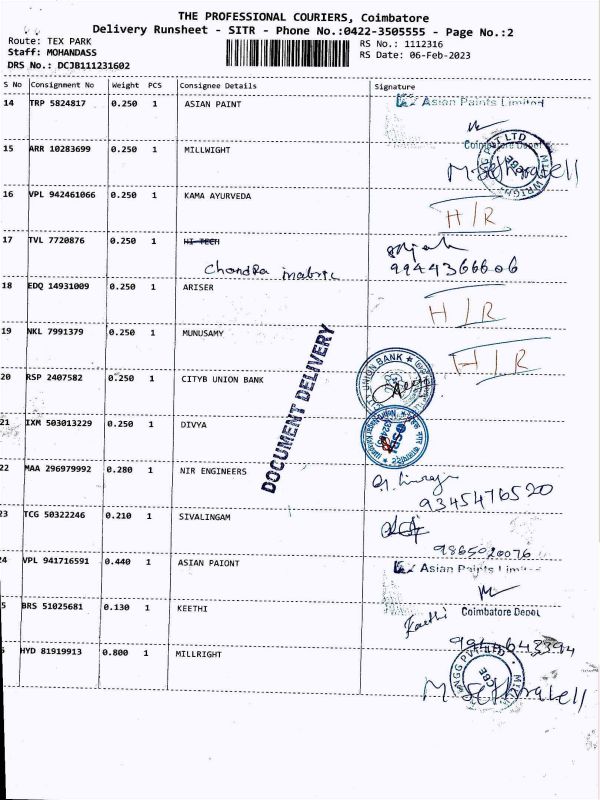 THE PROFESSIONAL COURIERS, Coimbatore
Delivery Runsheet - SITR - Phone No.:0422-3505555 - Page No.:2
Route: TEX PARK
RS No.: 1112316
Staff: MOHANDASS
RS Date: 06-Feb-2023
DRS No.: DCJB111231602
S No Consignment No Weight PCS Consignee Details Signature
14 TRP 5824817 0.250 1 ASIAN PAINT
Asian Paints Limited
Coimbatore Depot
15 ARR 10283699 0.250 1 MILLWIGHT
PVT LTD
CBE
16 VPL 942461066 0.250 1 KAMA AYURVEDA
H/R
17 TVL 7720876 0.250 1 HI-TECH
Chandra
9944366606
18 EDQ 14931009 0.250 1 ARISER
H/R
19 NKL 7991379 0.250 1 MUNUSAMY
H/R
DOCUMENT DELIVERY
20 RSP 2407582 0.250 1 CITYB UNION BANK
UNION BANK
21 IXM 503013229 0.250 1 DIVYA
SBI
22 MAA 296979992 0.280 1 NIR ENGINEERS
9345476520
23 TCG 50322246 0.210 1 SIVALINGAM
9865020076
24 VPL 941716591 0.440 1 ASIAN PAIONT
Asian Paints Limited
5 BRS 51025681 0.130 1 KEETHI
Coimbatore Depot
Keethi
HYD 81919913 0.800 1 MILLRIGHT
PVT LTD
CBE